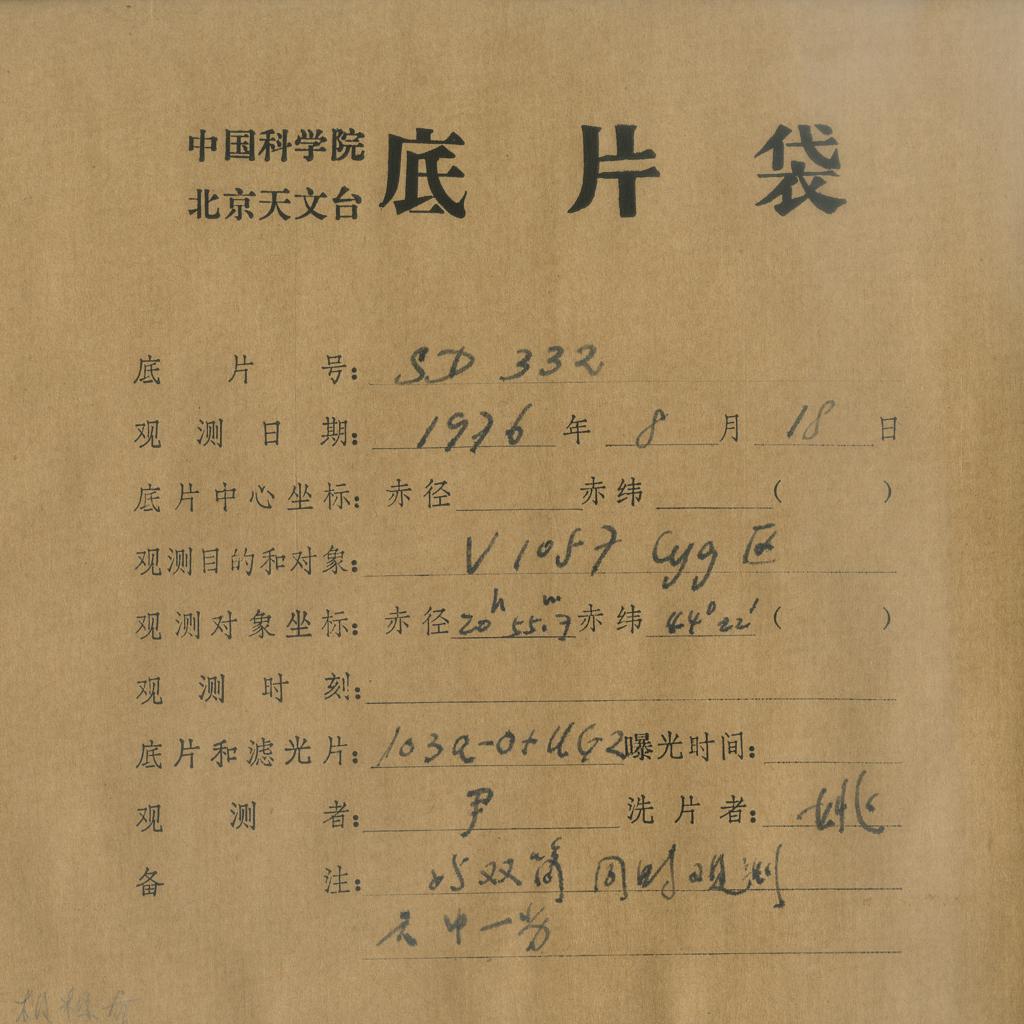 中国科学院
北京天文台
底片袋
底片号：SD 332
观测日期：1976年8月18日
底片中心坐标：赤径 赤纬 （ ）
观测目的和对象：V 1057 Cyg 区
观测对象坐标：赤径 20h 55m.7 赤纬 44°22′ （ ）
观测时刻：
底片和滤光片：103a-O+UG2 曝光时间：
观测者：尹 洗片者：姚
备注：与双筒同时观测